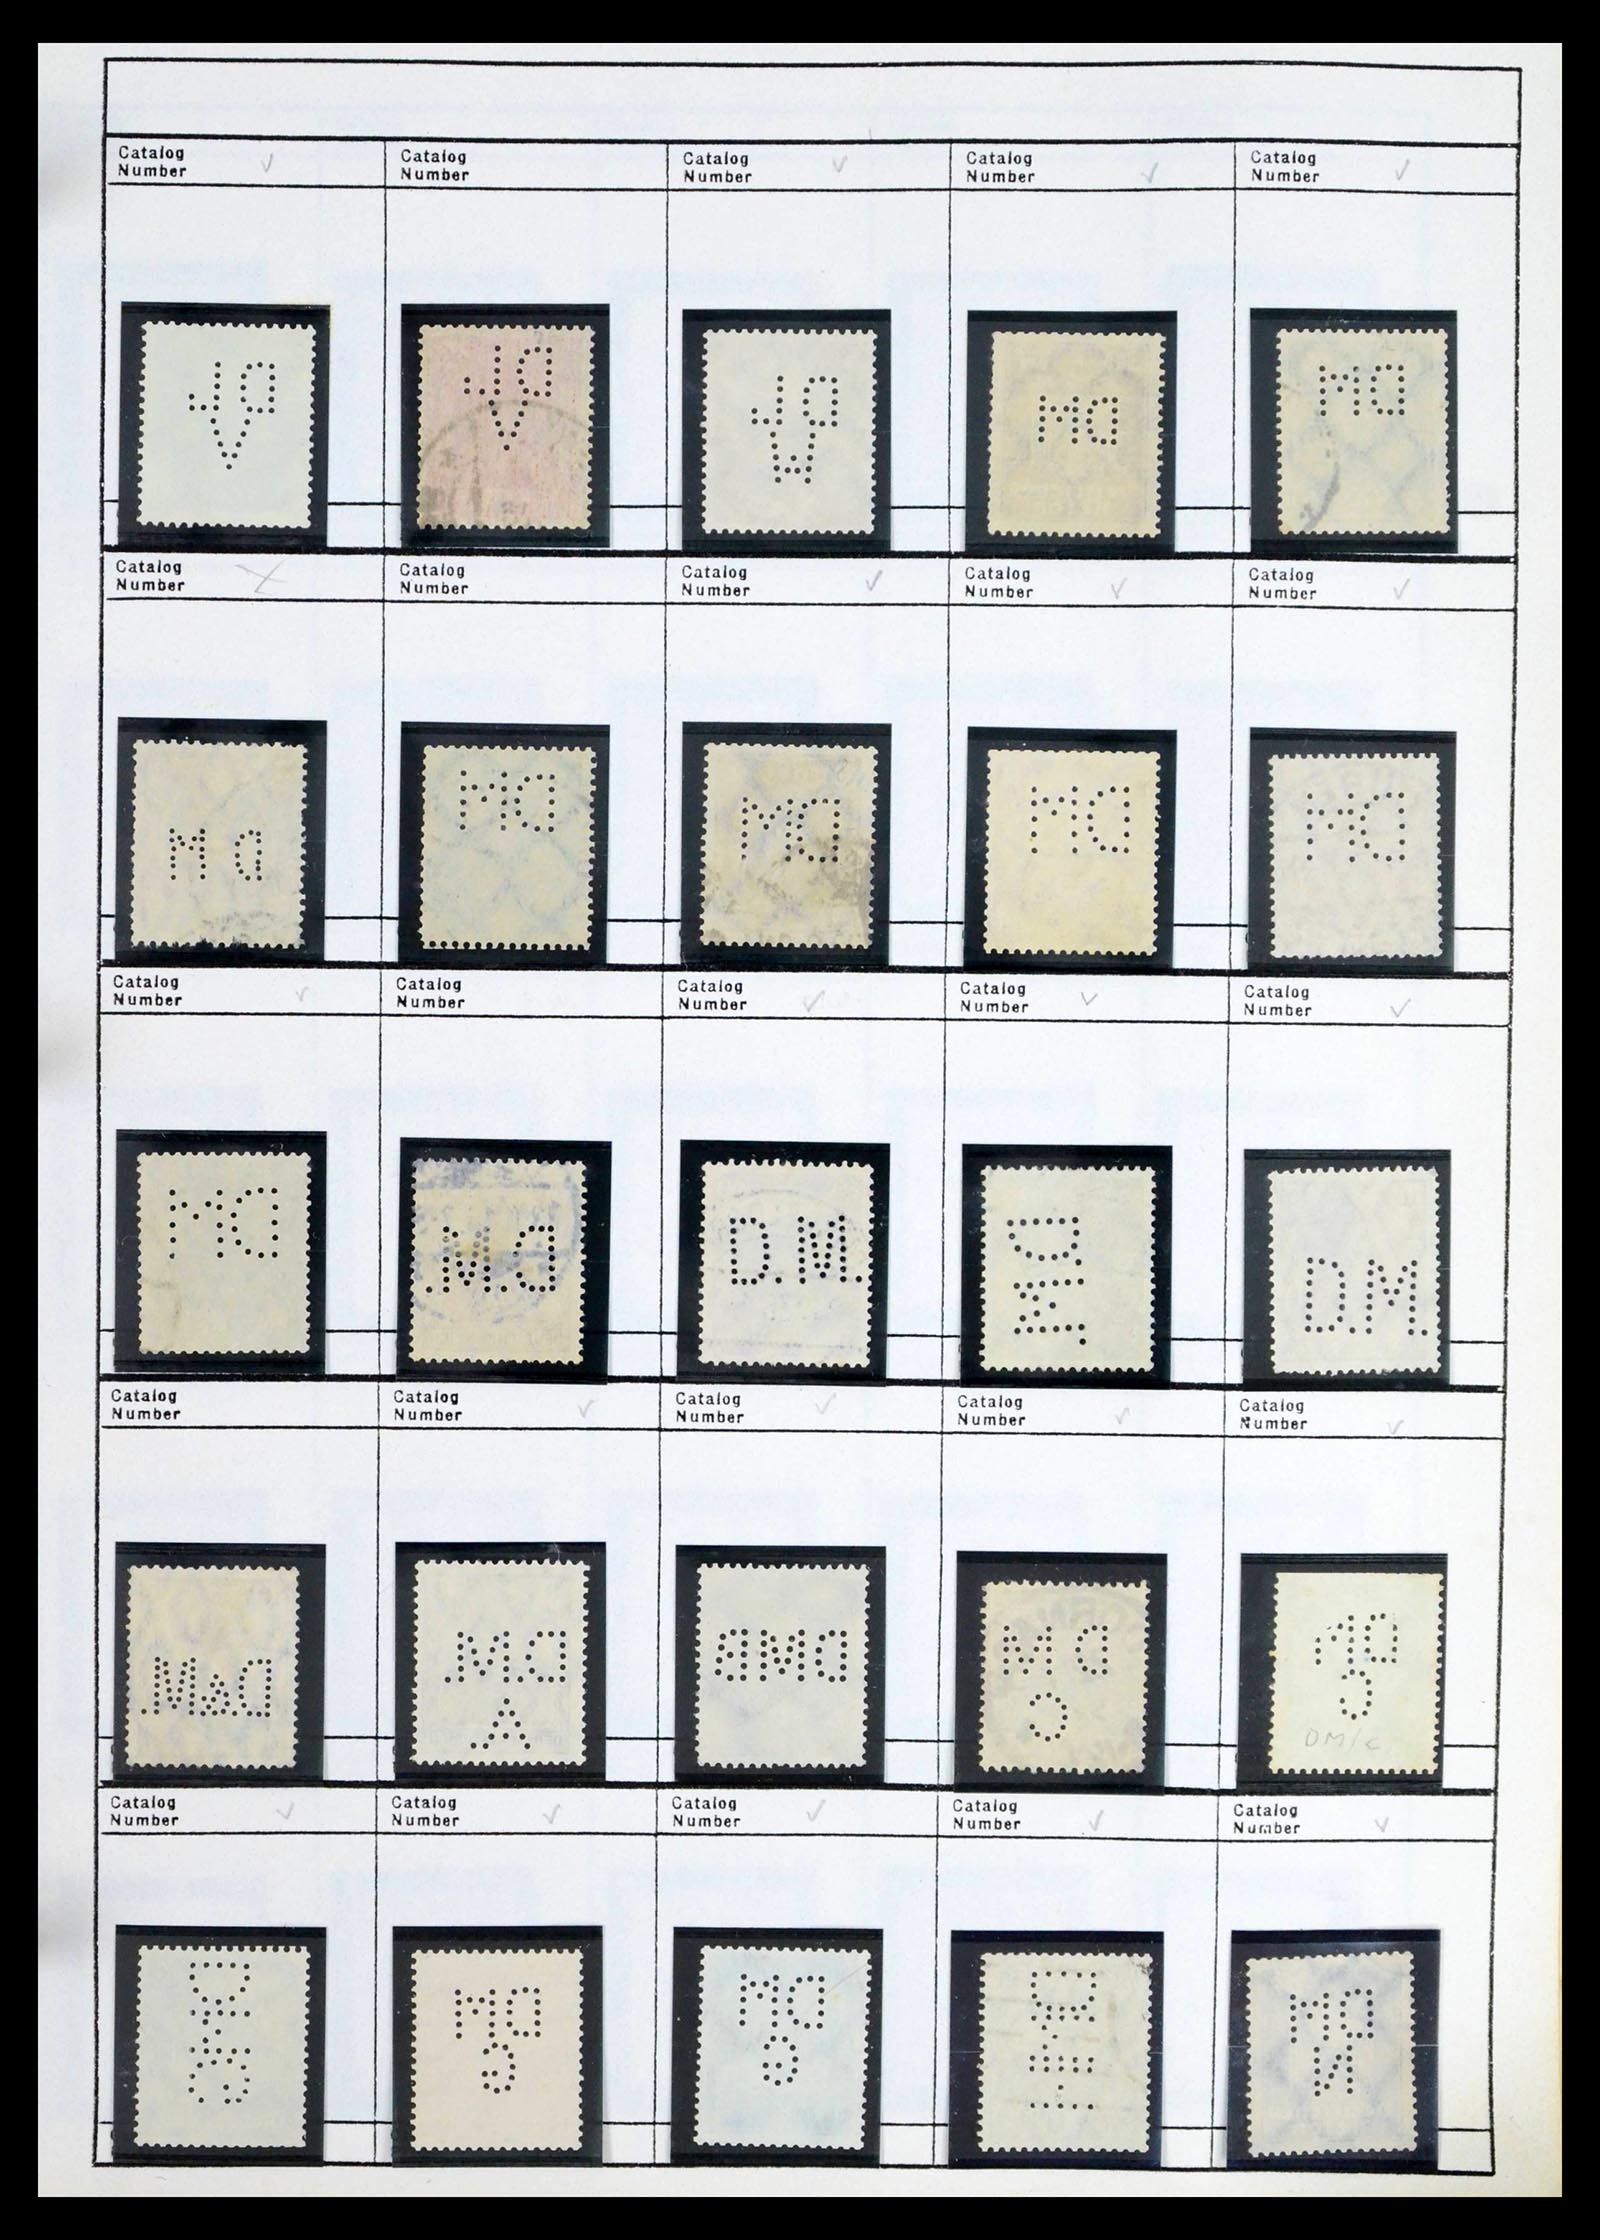 Catalog Number
Catalog Number
Catalog Number
Catalog Number
Catalog Number
DL
V
DL
V
DL
W
DM
DM
Catalog Number
Catalog Number
Catalog Number
Catalog Number
Catalog Number
D M
DM
DM
DM
DM
Catalog Number
Catalog Number
Catalog Number
Catalog Number
Catalog Number
DM
D.M.
D.M.
DM
D.M.
Catalog Number
Catalog Number
Catalog Number
Catalog Number
Catalog Number
D&M.
D.M.
A
DMB
D M
C
DM
C
DM/C
Catalog Number
Catalog Number
Catalog Number
Catalog Number
Catalog Number
DM
G
DM
G
DM
N